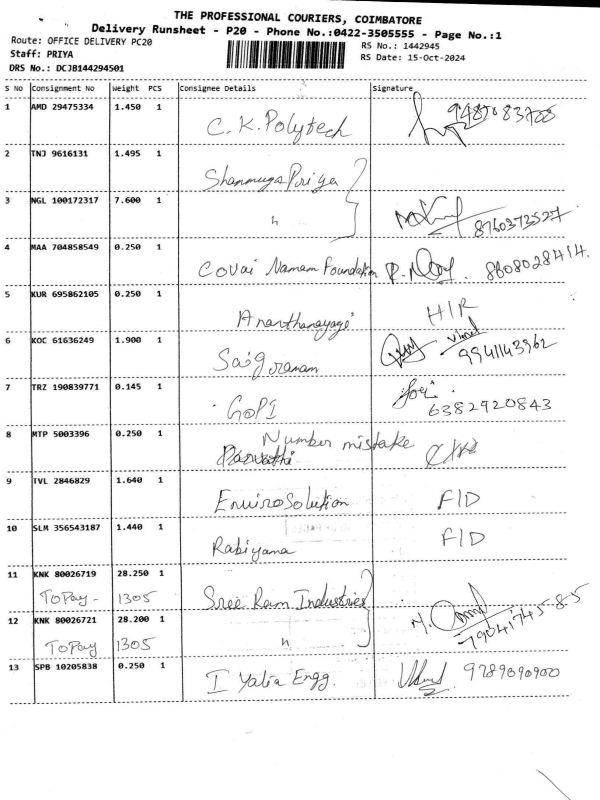 THE PROFESSIONAL COURIERS, COIMBATORE
Delivery Runsheet - P20 - Phone No.:0422-3505555 - Page No.:1
Route: OFFICE DELIVERY PC20 RS No.: 1442945
Staff: PRIYA RS Date: 15-Oct-2024
DRS No.: DCJB144294501
S No Consignment No Weight PCS Consignee Details Signature
1 AMD 29475334 1.450 1 C.K.Polytech
2 TNJ 9616131 1.495 1 Shanmuga Priya
3 NGL 100172317 7.600 1 " 8760373527
4 MAA 704858549 0.250 1 Covai Mamam Foundation 8608028414.
5 KUR 695862105 0.250 1 Ananthanayagi H/R
6 KOC 61636249 1.900 1 Saig 9941143962
7 TRZ 190839771 0.145 1 GOPI 6382920843
8 MTP 5003396 0.250 1 Number mistake
Parvathi
9 TVL 2846829 1.640 1 EnviroSolution F/D
10 SLM 356543187 1.440 1 Rabiyama F/D
11 KNK 80026719 28.250 1 Sree Ram Industries
ToPay - 1305
12 KNK 80026721 28.200 1 "
ToPay 1305
13 SPB 10205838 0.250 1 I Yalia Engg. 9289090900